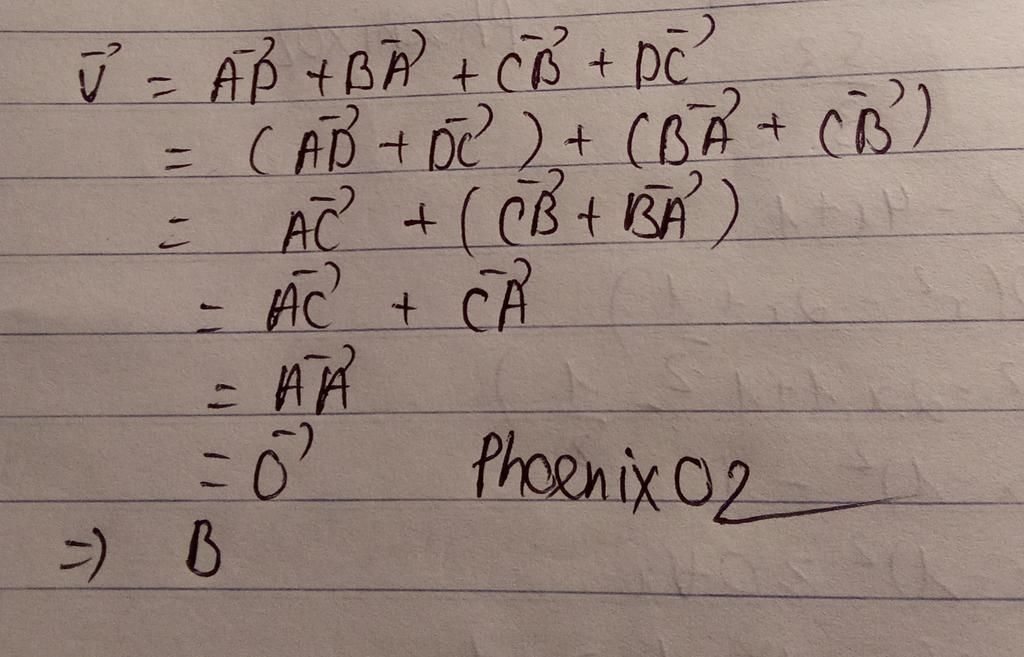 v⃗ = AD⃗ + BA⃗ + CB⃗ + DC⃗
= (AD⃗ + DC⃗) + (BA⃗ + CB⃗)
= AC⃗ + (CB⃗ + BA⃗)
= AC⃗ + CA⃗
= AA⃗
= 0⃗ Phoenix02
=> B